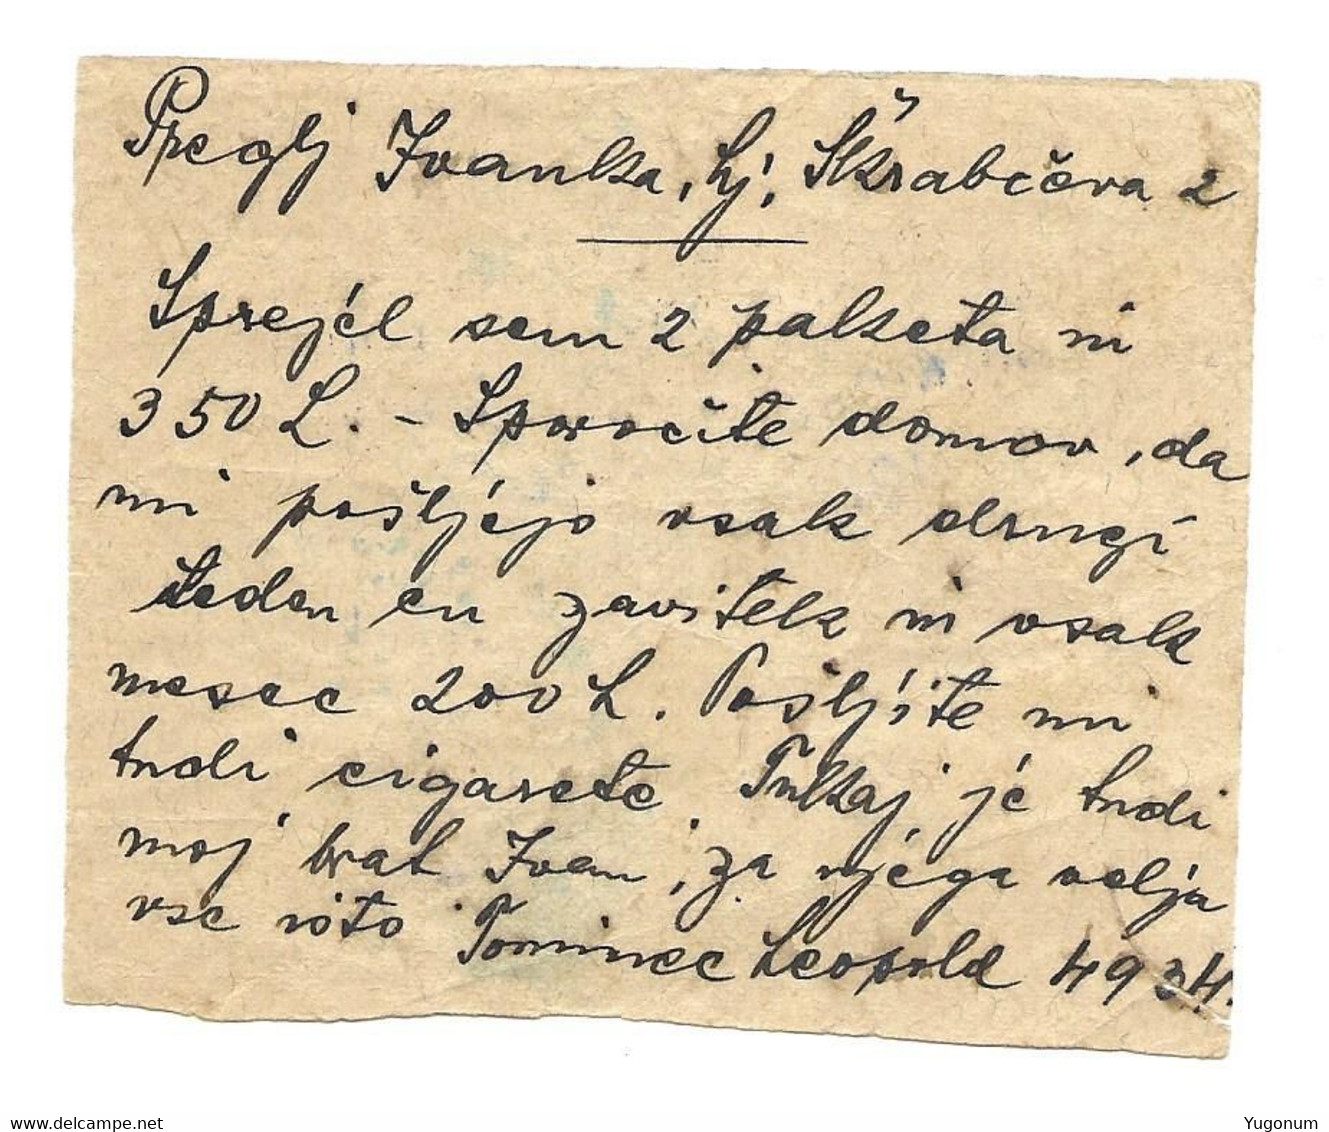 Preglj Ivanka, Lj, Škrabčeva 2
Sprejel sem 2 paketa in
350 L. - Sporočite domov, da
mi pošljejo vsak drugi
teden en zavitek in vsak
mesec 200 L. Pošljite mi
tudi cigarete. Tukaj je tudi
moj brat Ivan, za njega velja
vse isto. Tominec Leopold 4934.
Yugonum